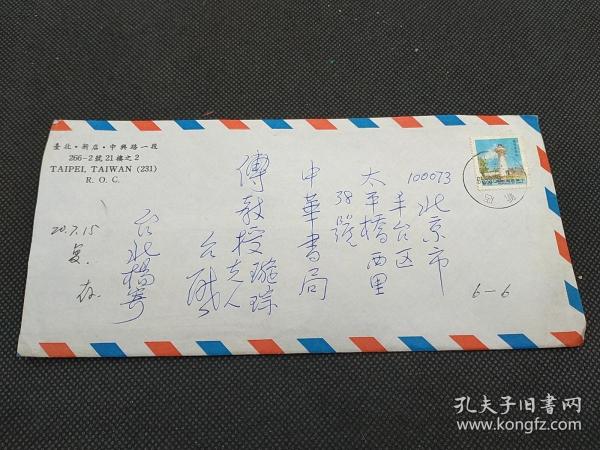 臺北·新店·中興路一段
266-2號21樓之2
TAIPEI, TAIWAN (231)
R. O. C.
100073
北京市
丰台区
太平橋西里
38號
中華書局
傅教授璇琮
夫人
台啟
台北楊寄
70.7.15
复.
存.
6-6
孔夫子旧书网
www.kongfz.com